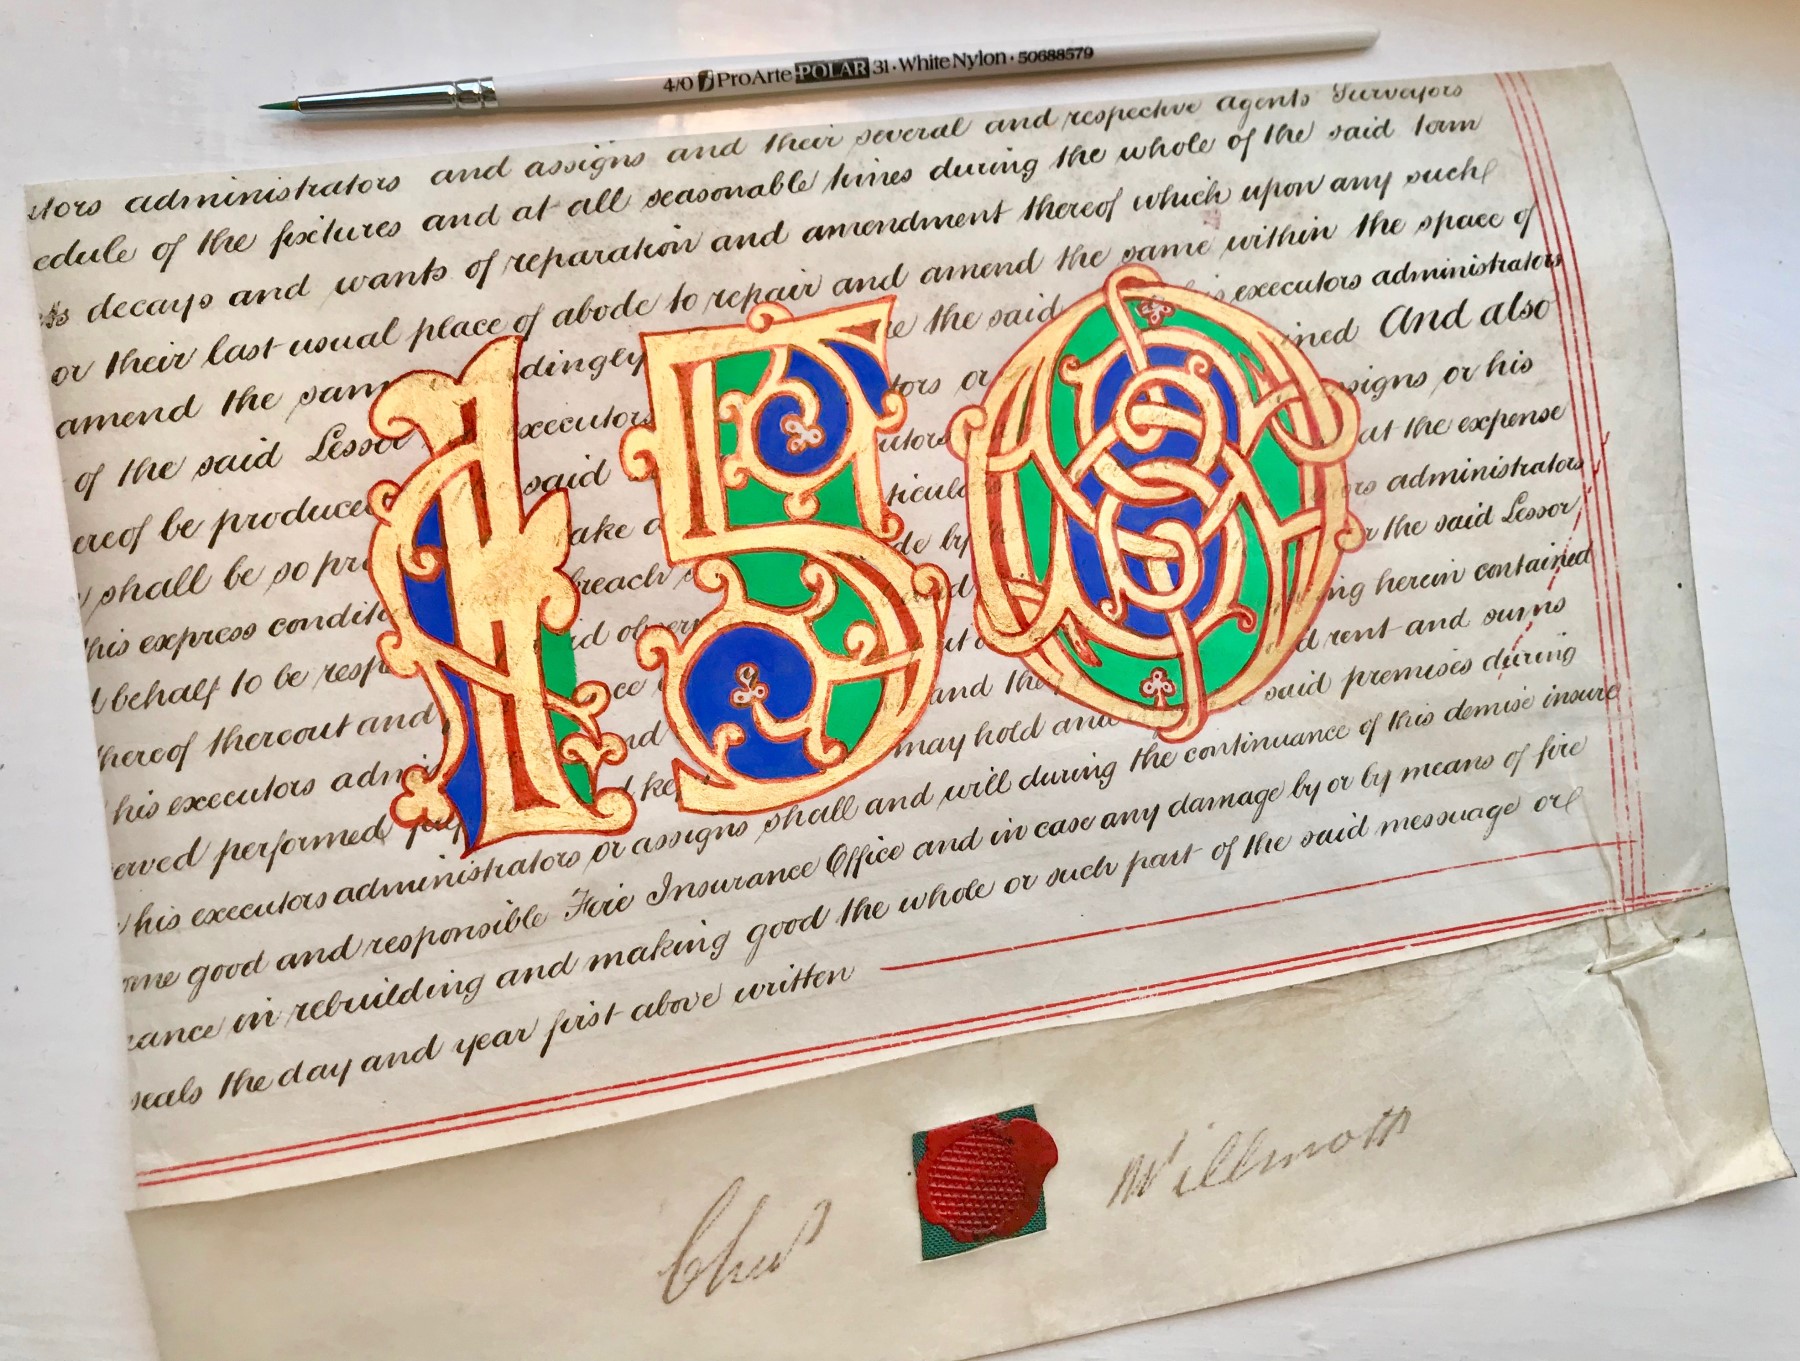 4/0 ProArte POLAR 31 · White Nylon · 50688579
utors administrators and assigns and their several and respective Agents Surveyors
edule of the fixtures and at all seasonable times during the whole of the said term
decays and wants of reparation and amendment thereof which upon any such
or their last usual place of abode to repair and amend the same within the space of
amend the same dingly re the said his executors administrators
of the said Lessor executors tors or ined And also
ereof be produced said utors ssigns or his
shall be so pro ake a ticula at the expense
this express conditi breach de by the ors administrators
behalf to be resp id obser and r the said Lessor
thereof thereout and ce ut ing herein contained
his executors admi nd and the d rent and sums
erved performed kep may hold and said premises during
his executors administrators or assigns shall and will during the continuance of this demise insure
ome good and responsible Fire Insurance Office and in case any damage by or by means of fire
rance in rebuilding and making good the whole or such part of the said messuage or
seals the day and year first above written
150
Chas Willmott